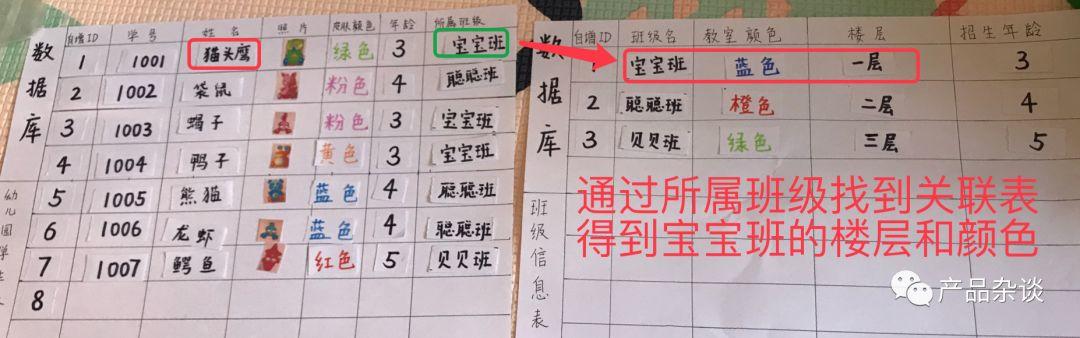 数据库
自增ID 学号 姓名 照片 皮肤颜色 年龄 所属班级
1 1001 猫头鹰 绿色 3 宝宝班
2 1002 袋鼠 粉色 4 聪聪班
3 1003 蝎子 粉色 3 宝宝班
4 1004 鸭子 黄色 3 宝宝班
5 1005 熊猫 蓝色 4 聪聪班
6 1006 龙虾 蓝色 4 聪聪班
7 1007 鳄鱼 红色 5 贝贝班
8
幼儿园学生
数据库
自增ID 班级名 教室颜色 楼层 招生年龄
1 宝宝班 蓝色 一层 3
2 聪聪班 橙色 二层 4
3 贝贝班 绿色 三层 5
班级信息表
通过所属班级找到关联表
得到宝宝班的楼层和颜色
产品杂谈